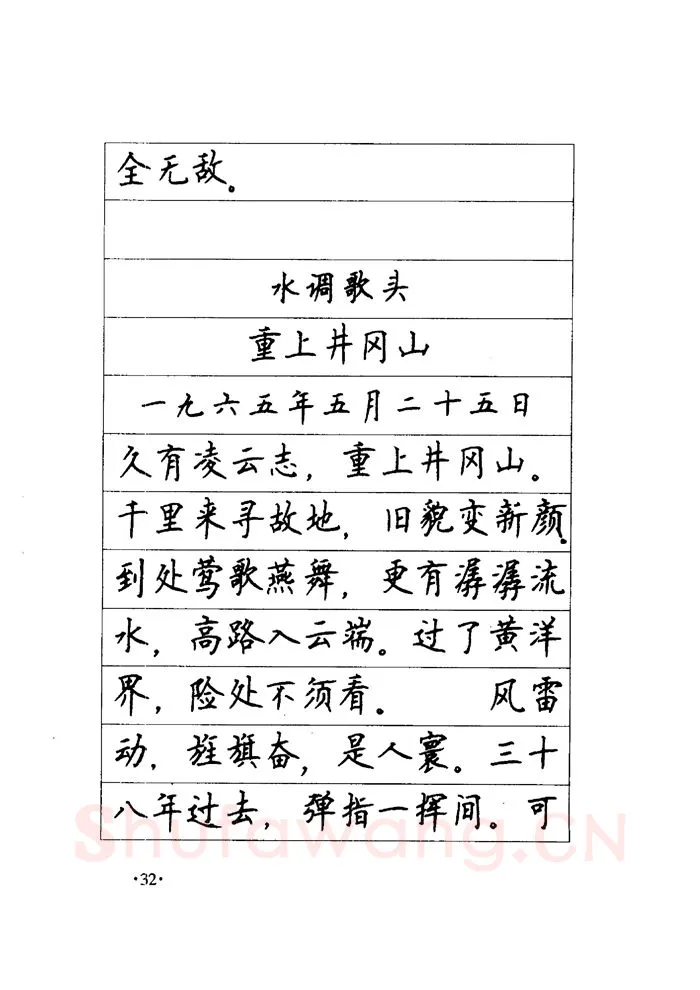 全无敌。
水调歌头
重上井冈山
一九六五年五月二十五日
久有凌云志，重上井冈山。
千里来寻故地，旧貌变新颜。
到处莺歌燕舞，更有潺潺流
水，高路入云端。过了黄洋
界，险处不须看。　　风雷
动，旌旗奋，是人寰。三十
八年过去，弹指一挥间。可
Shufawang.CN
·32·